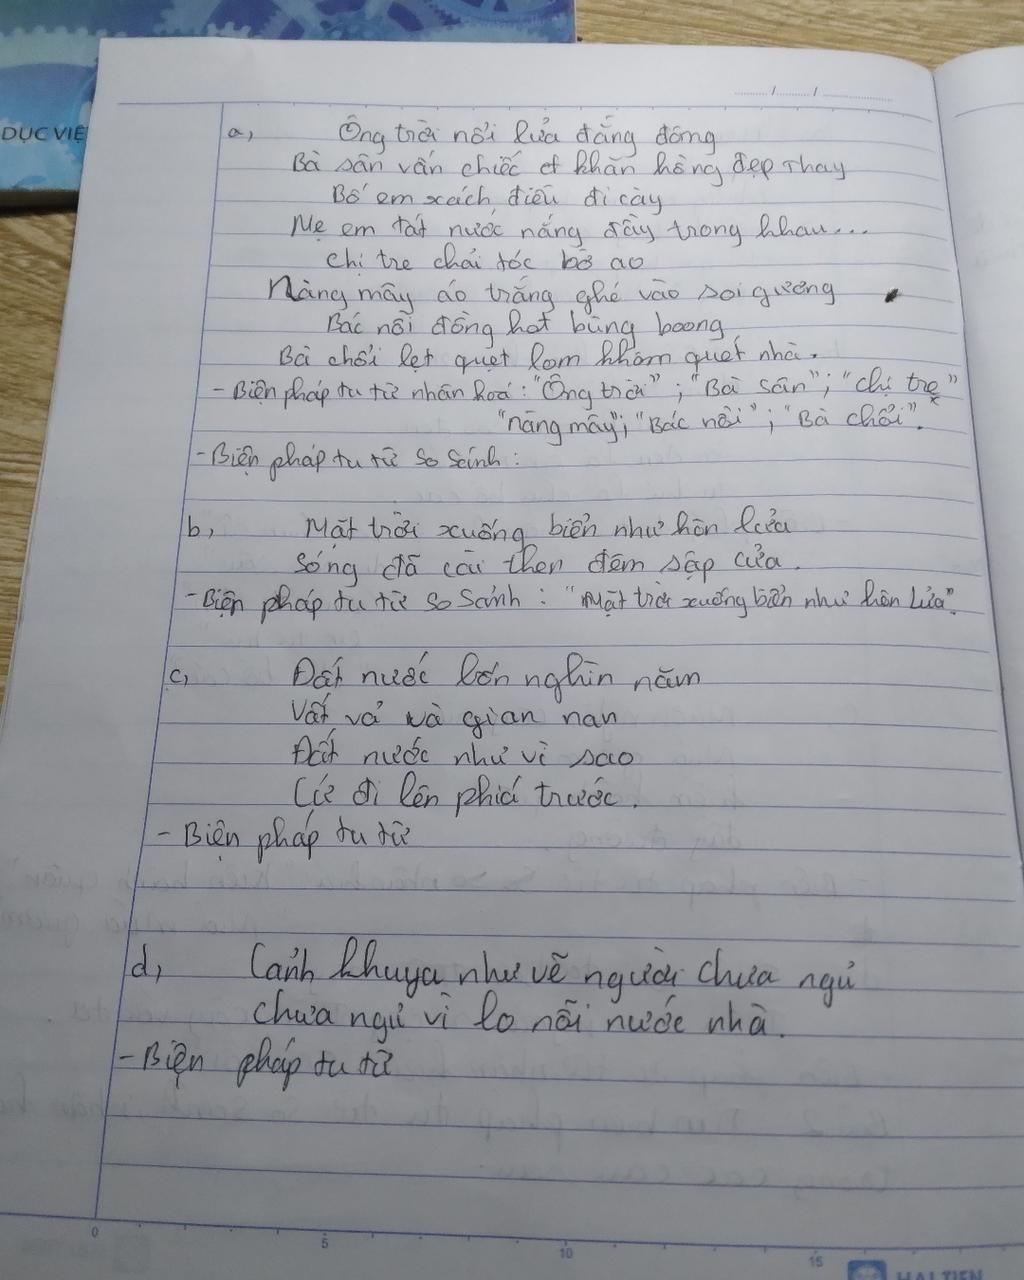 DỤC VIỆ
...../...../...............
a, Ông trời nổi lửa đằng đông
Bà sân vấn chiếc khăn hồng đẹp thay
Bố em xách điếu đi cày
Mẹ em tát nước nắng đầy trong khau...
Chị tre chải tóc bờ ao
Nàng mây áo trắng ghé vào soi gương
Bác nồi đồng hát bùng boong
Bà chổi lẹt quẹt lom khom quét nhà.
- Biện pháp tu từ nhân hoá: "Ông trời"; "Bà sân"; "chị tre"
"nàng mây"; "Bác nồi"; "Bà chổi".
- Biện pháp tu từ so sánh:
b, Mặt trời xuống biển như hòn lửa
Sóng đã cài then đêm sập cửa.
- Biện pháp tu từ so sánh: "Mặt trời xuống biển như hòn lửa".
c, Đất nước bốn nghìn năm
Vất vả và gian nan
Đất nước như vì sao
Cứ đi lên phía trước.
- Biện pháp tu từ
d, Cảnh khuya như vẽ người chưa ngủ
Chưa ngủ vì lo nỗi nước nhà.
- Biện pháp tu từ
0 5 10 15
HẢI TIẾN